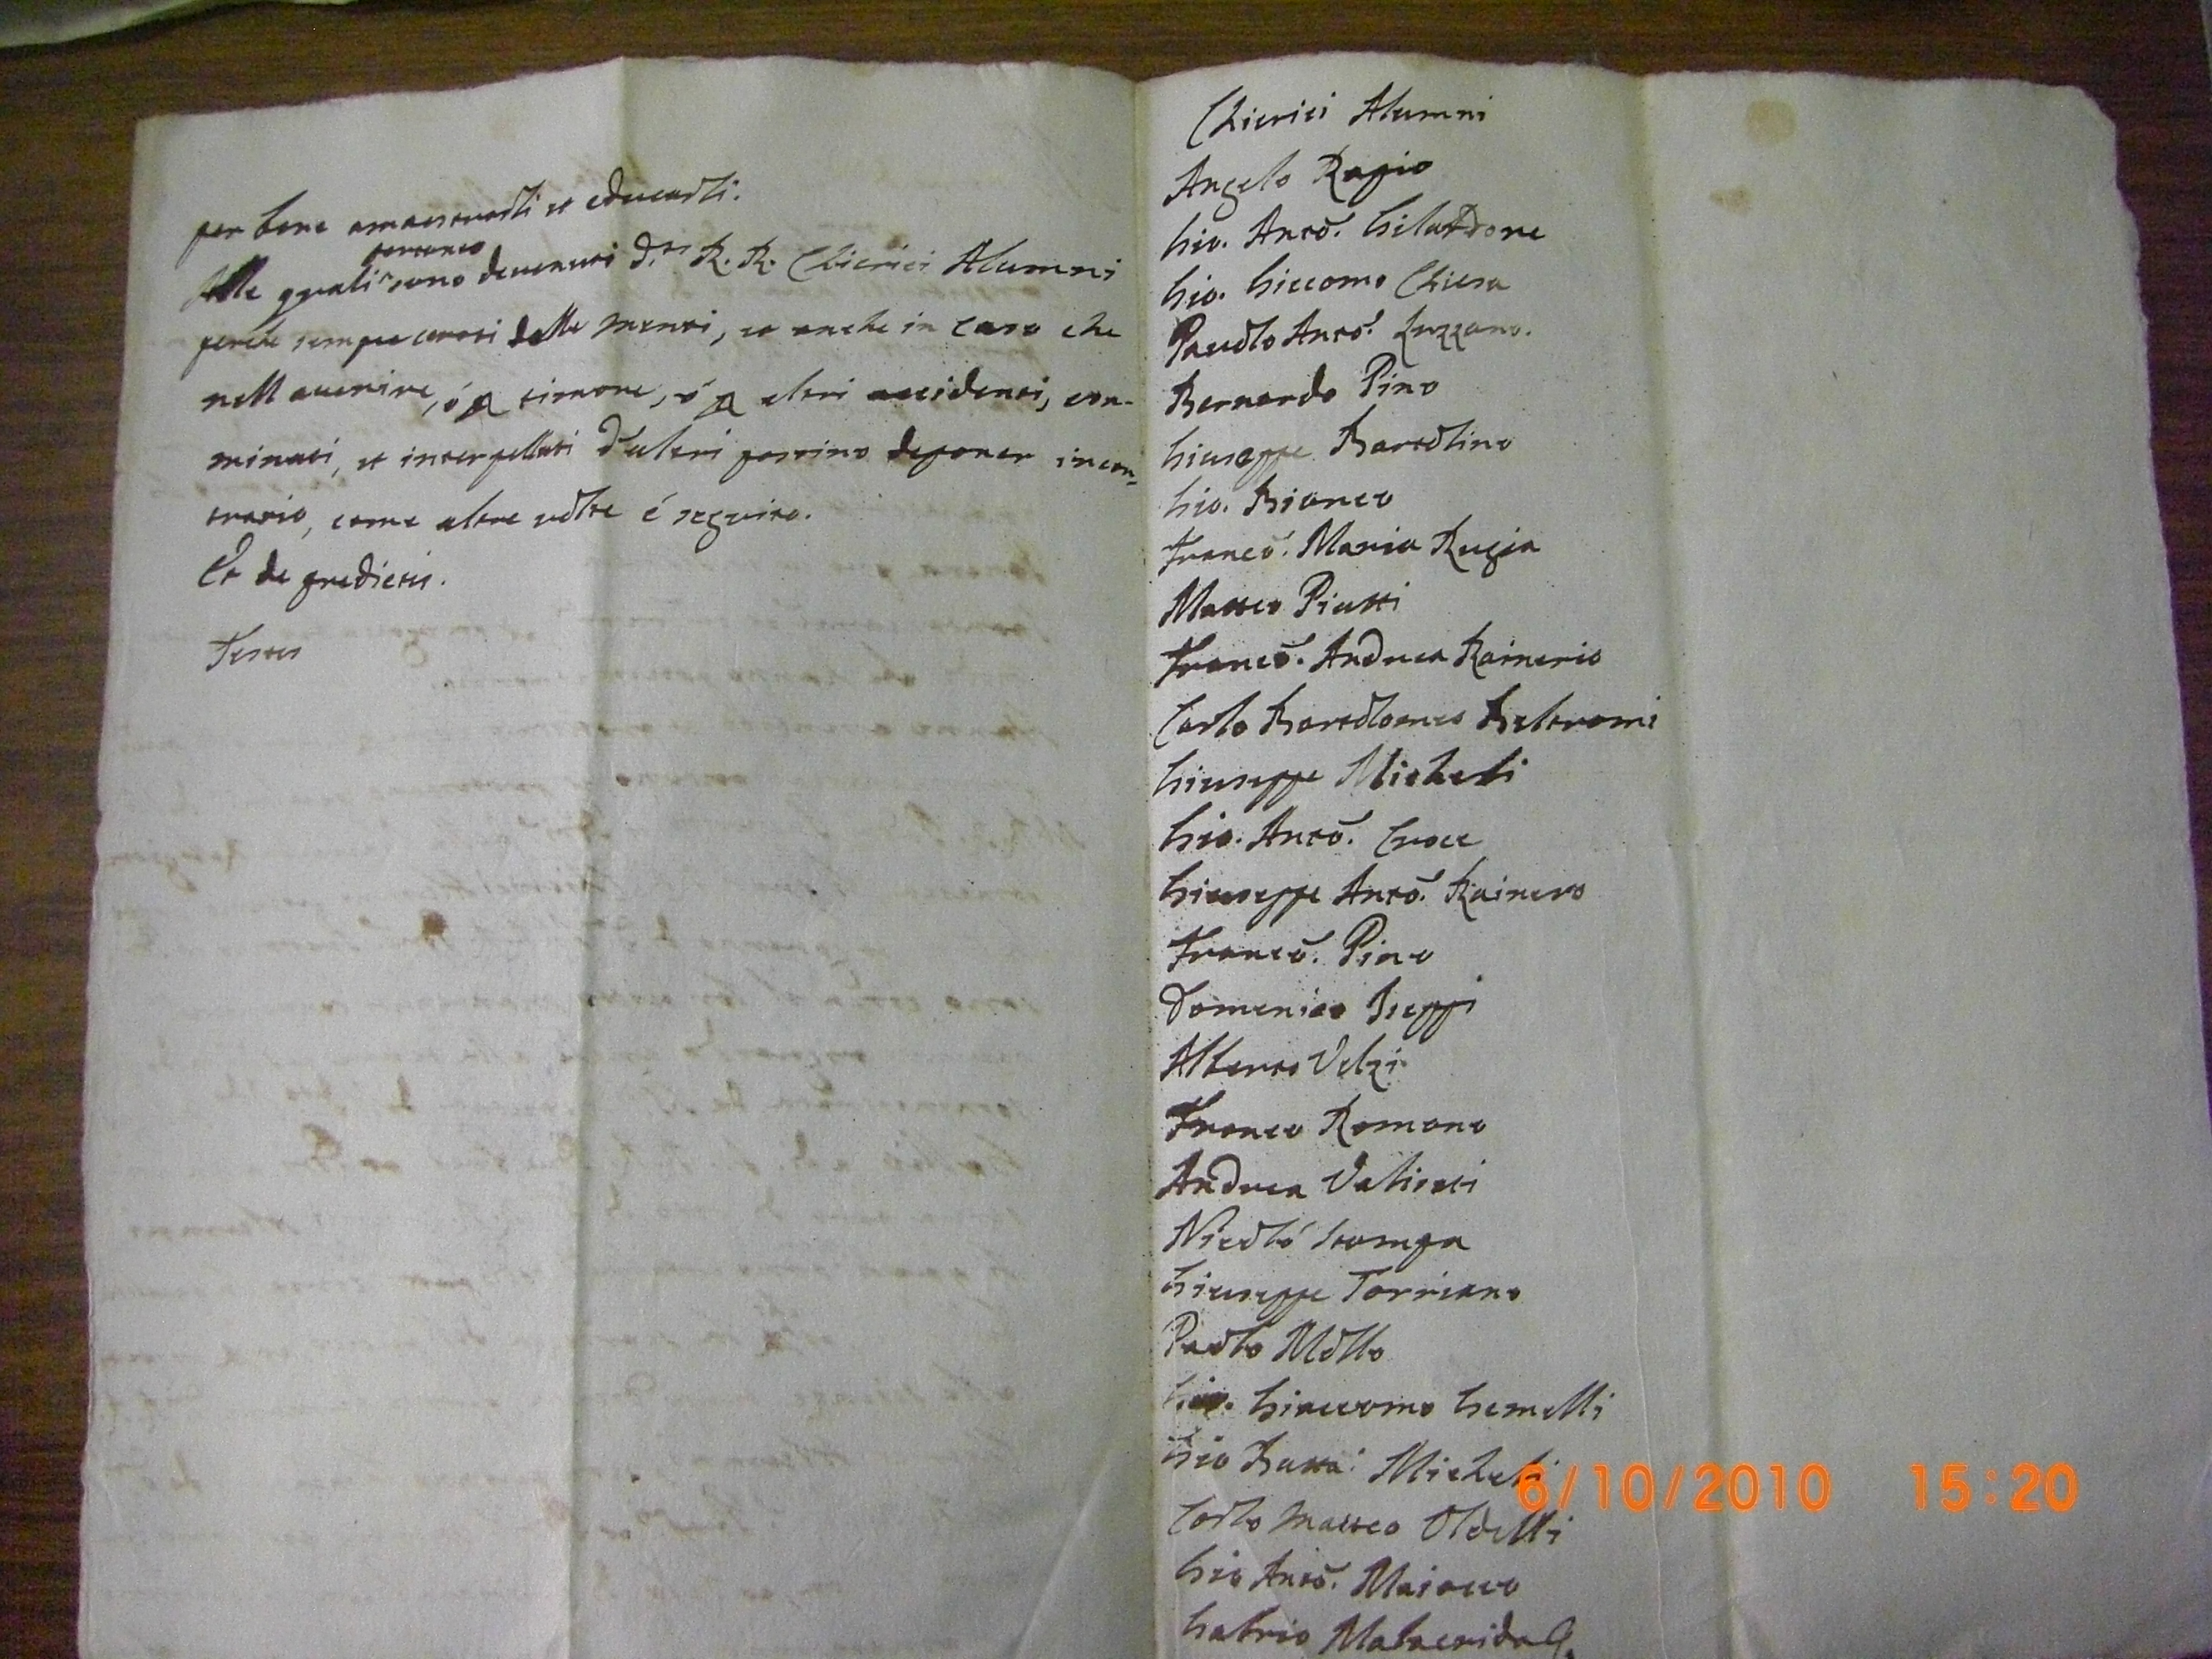 per bene amaestrarli et educarli.
Alle quali sono pertanto devenuti d.ti R. R. Chierici Alumni
perche sempre consti della , et anche in caso che
nell avenire, ó p timore, ó p altri accidenti, com-
minati, et interpellati d'altri possino deponer incon-
trario, come altre volte é seguito.
Et de predictis.
Testes
Chierici Alumni
Angelo Ragio
Gio. Antő. Gilardone
Gio. Giacomo Chiesa
Paolo Antő. Luzzano.
Bernardo Pino
Giuseppe Bartolino
Gio. Bianco
Francő. Maria Rugia
Matteo Piatti
Francő. Andrea Rainerio
Carlo Bartolomeo Beltrami
Giuseppe Micheli
Gio. Antő. Croce
Giuseppe Antő. Rainero
Francő. Pino
Domenico Iseppi
Alberto Velzi
Franco Romano
Andrea
Nicoló Stampa
Giuseppe Torriano
Paolo Mollo
Gio. Giaccomo Gemelli
Gio Batta. Micheli
Carlo Matteo Oldelli
Gio Antő. Maiocco
Gabrio Malacrida
6/10/2010 15:20